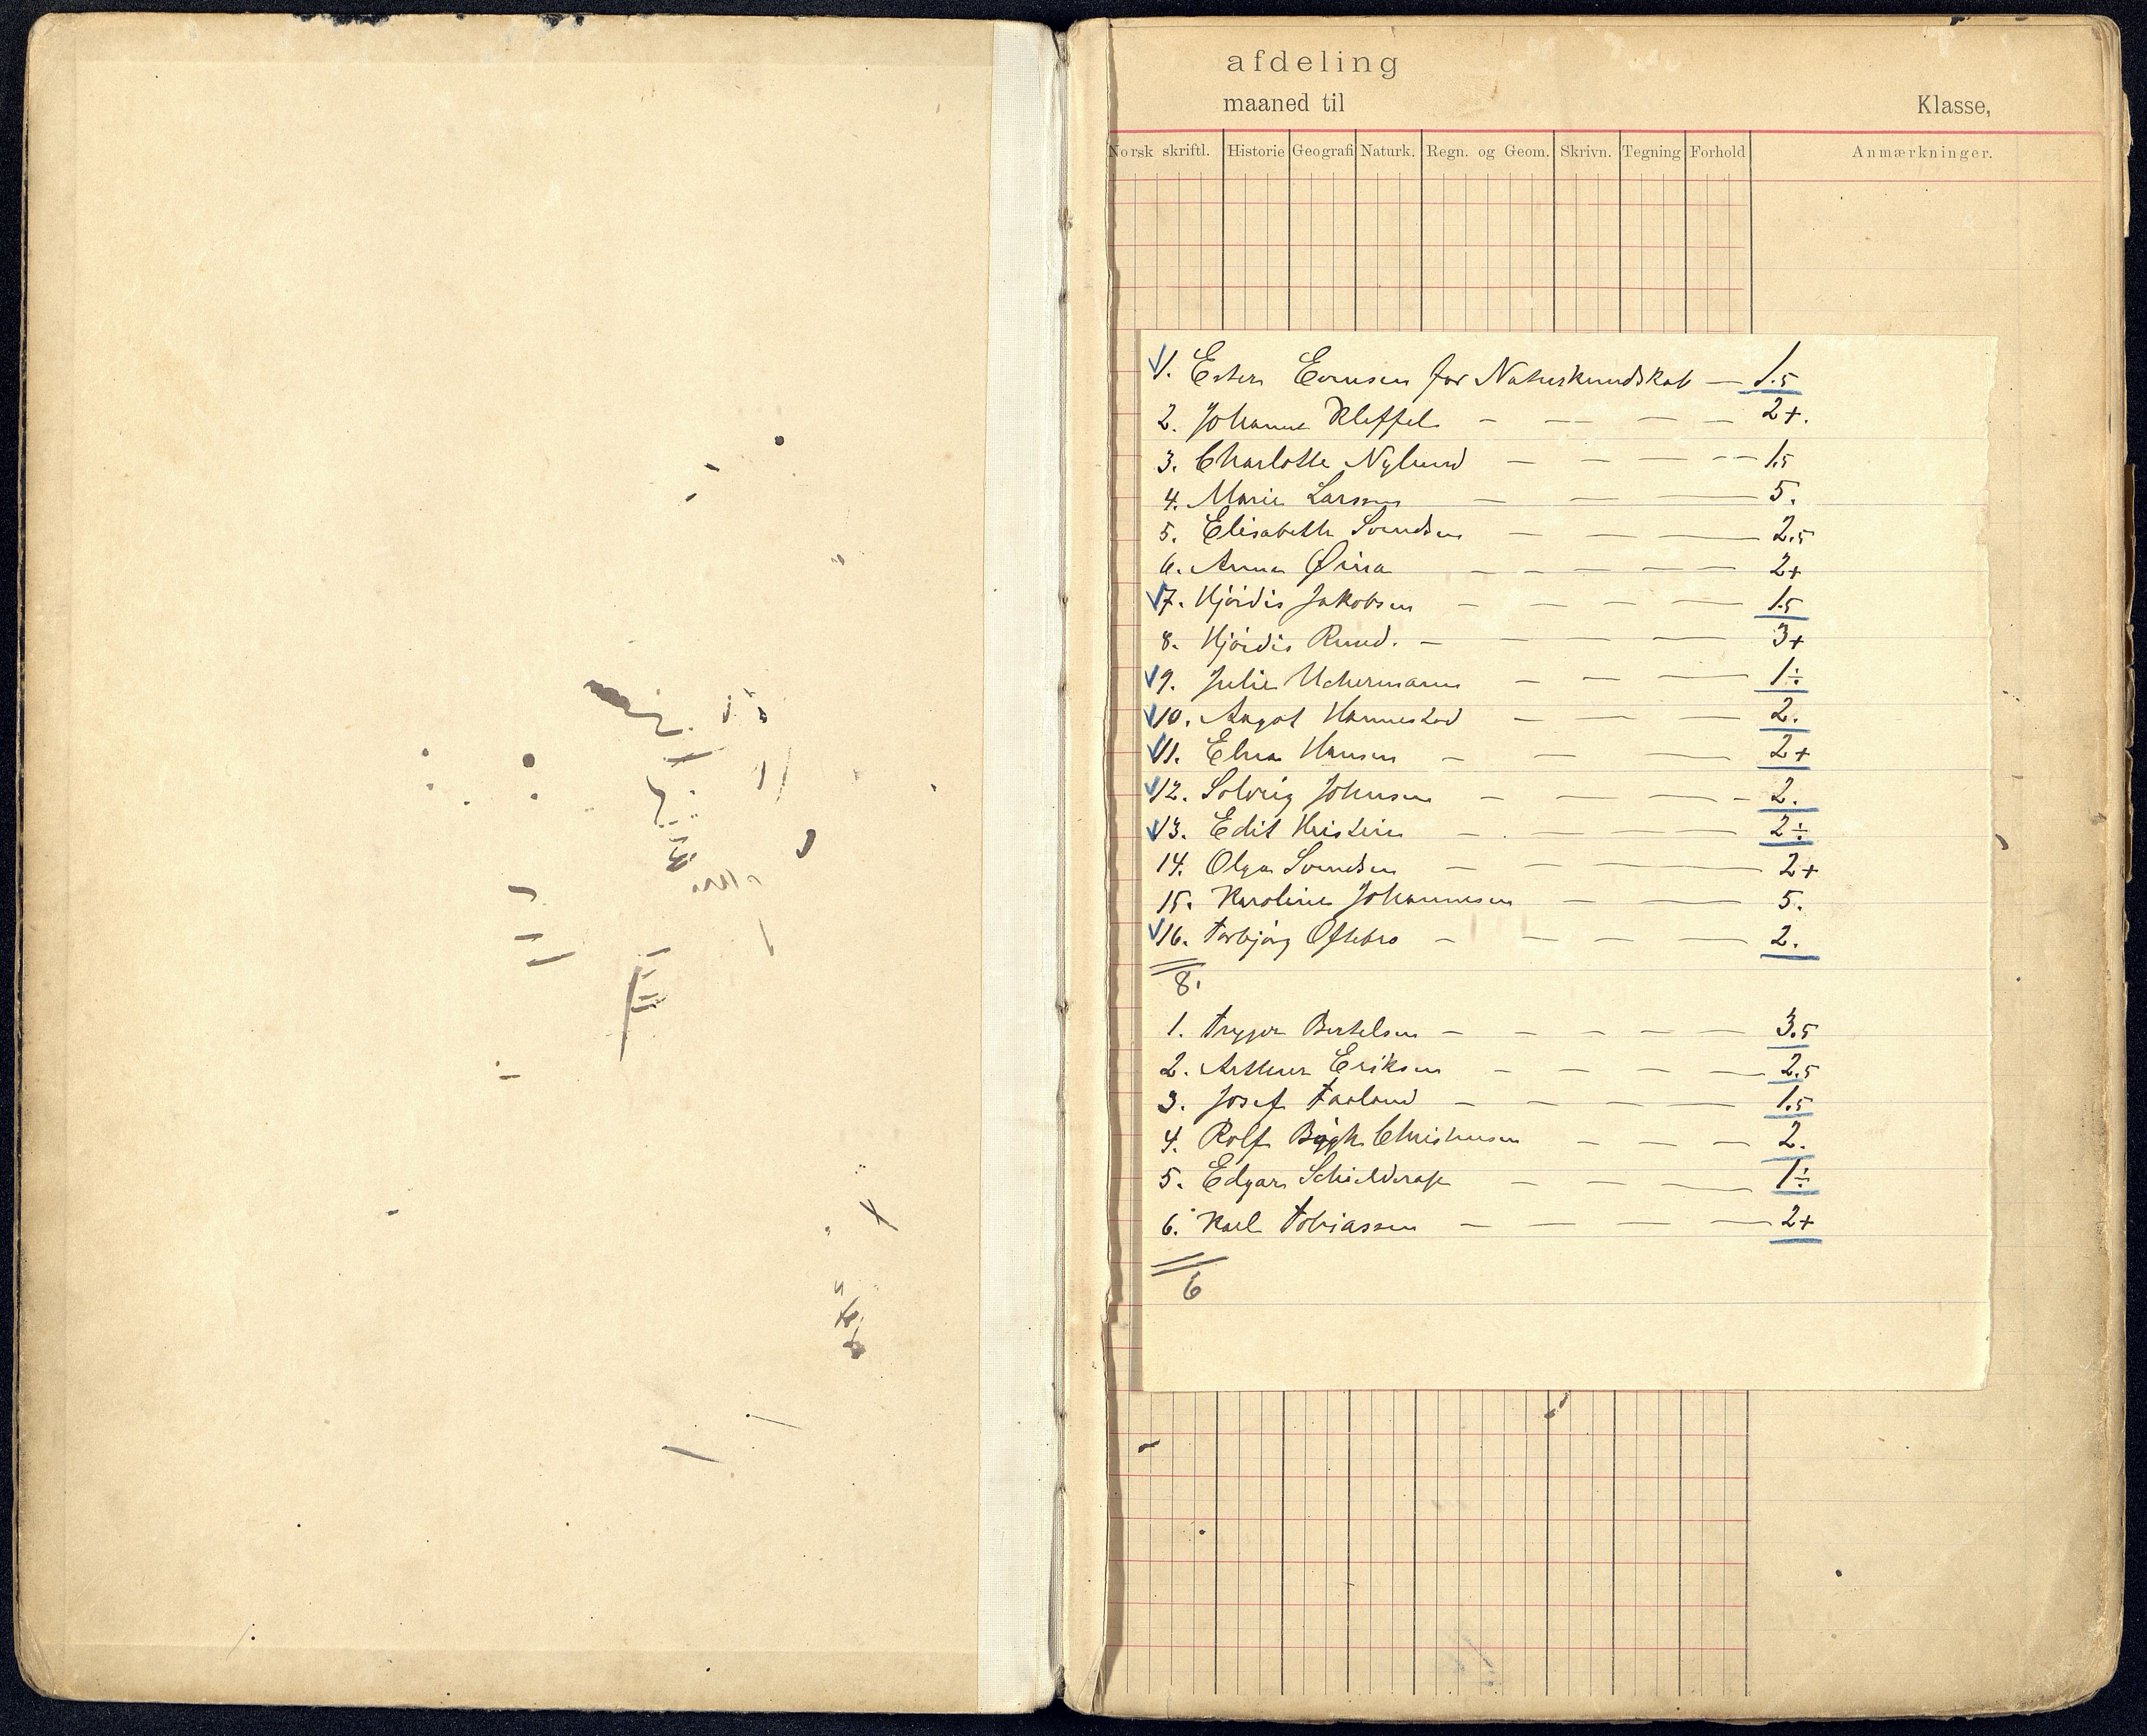 afdeling
maaned til Klasse,
Norsk skriftl. Historie Geografi Naturk. Regn. og Geom. Skrivn. Tegning Forhold Anmærkninger.
1. Ester Evensen for Naturkundskab — 1.5
2. Johanne Kleppel — — — — 2+.
3. Charlotte Nylund — — — — 1.5
4. Marie Larsen — — — 5.
5. Elisabeth Svendsen — — — 2.5
6. Anna Øina — — — — — 2+
7. Hjördis Jakobsen — — — — 1.5
8. Hjördis Ruud. — — — — 3+
9. Julie Uchermann — — — 1÷
10. Aagot Hannestad — — — 2.
11. Elna Hansen — — — 2+
12. Solveig Johnsen — — — — 2.
13. Edit Kristin — — — 2÷
14. Olga Svendsen — — — 2+
15. Karoline Johannesen — — — 5.
16. Torbjörg Oftebro — — — — 2.
8.
1. Trygve Bertelsen — — — — — 3.5
2. Arthur Eriksen — — — — 2.5
3. Josef Taaland — — — — — 1.5
4. Rolf Bügh Christensen — — — — 2.
5. Edgar Schielderup — — — — 1÷
6. Karl Tobiassen — — — — 2+
6